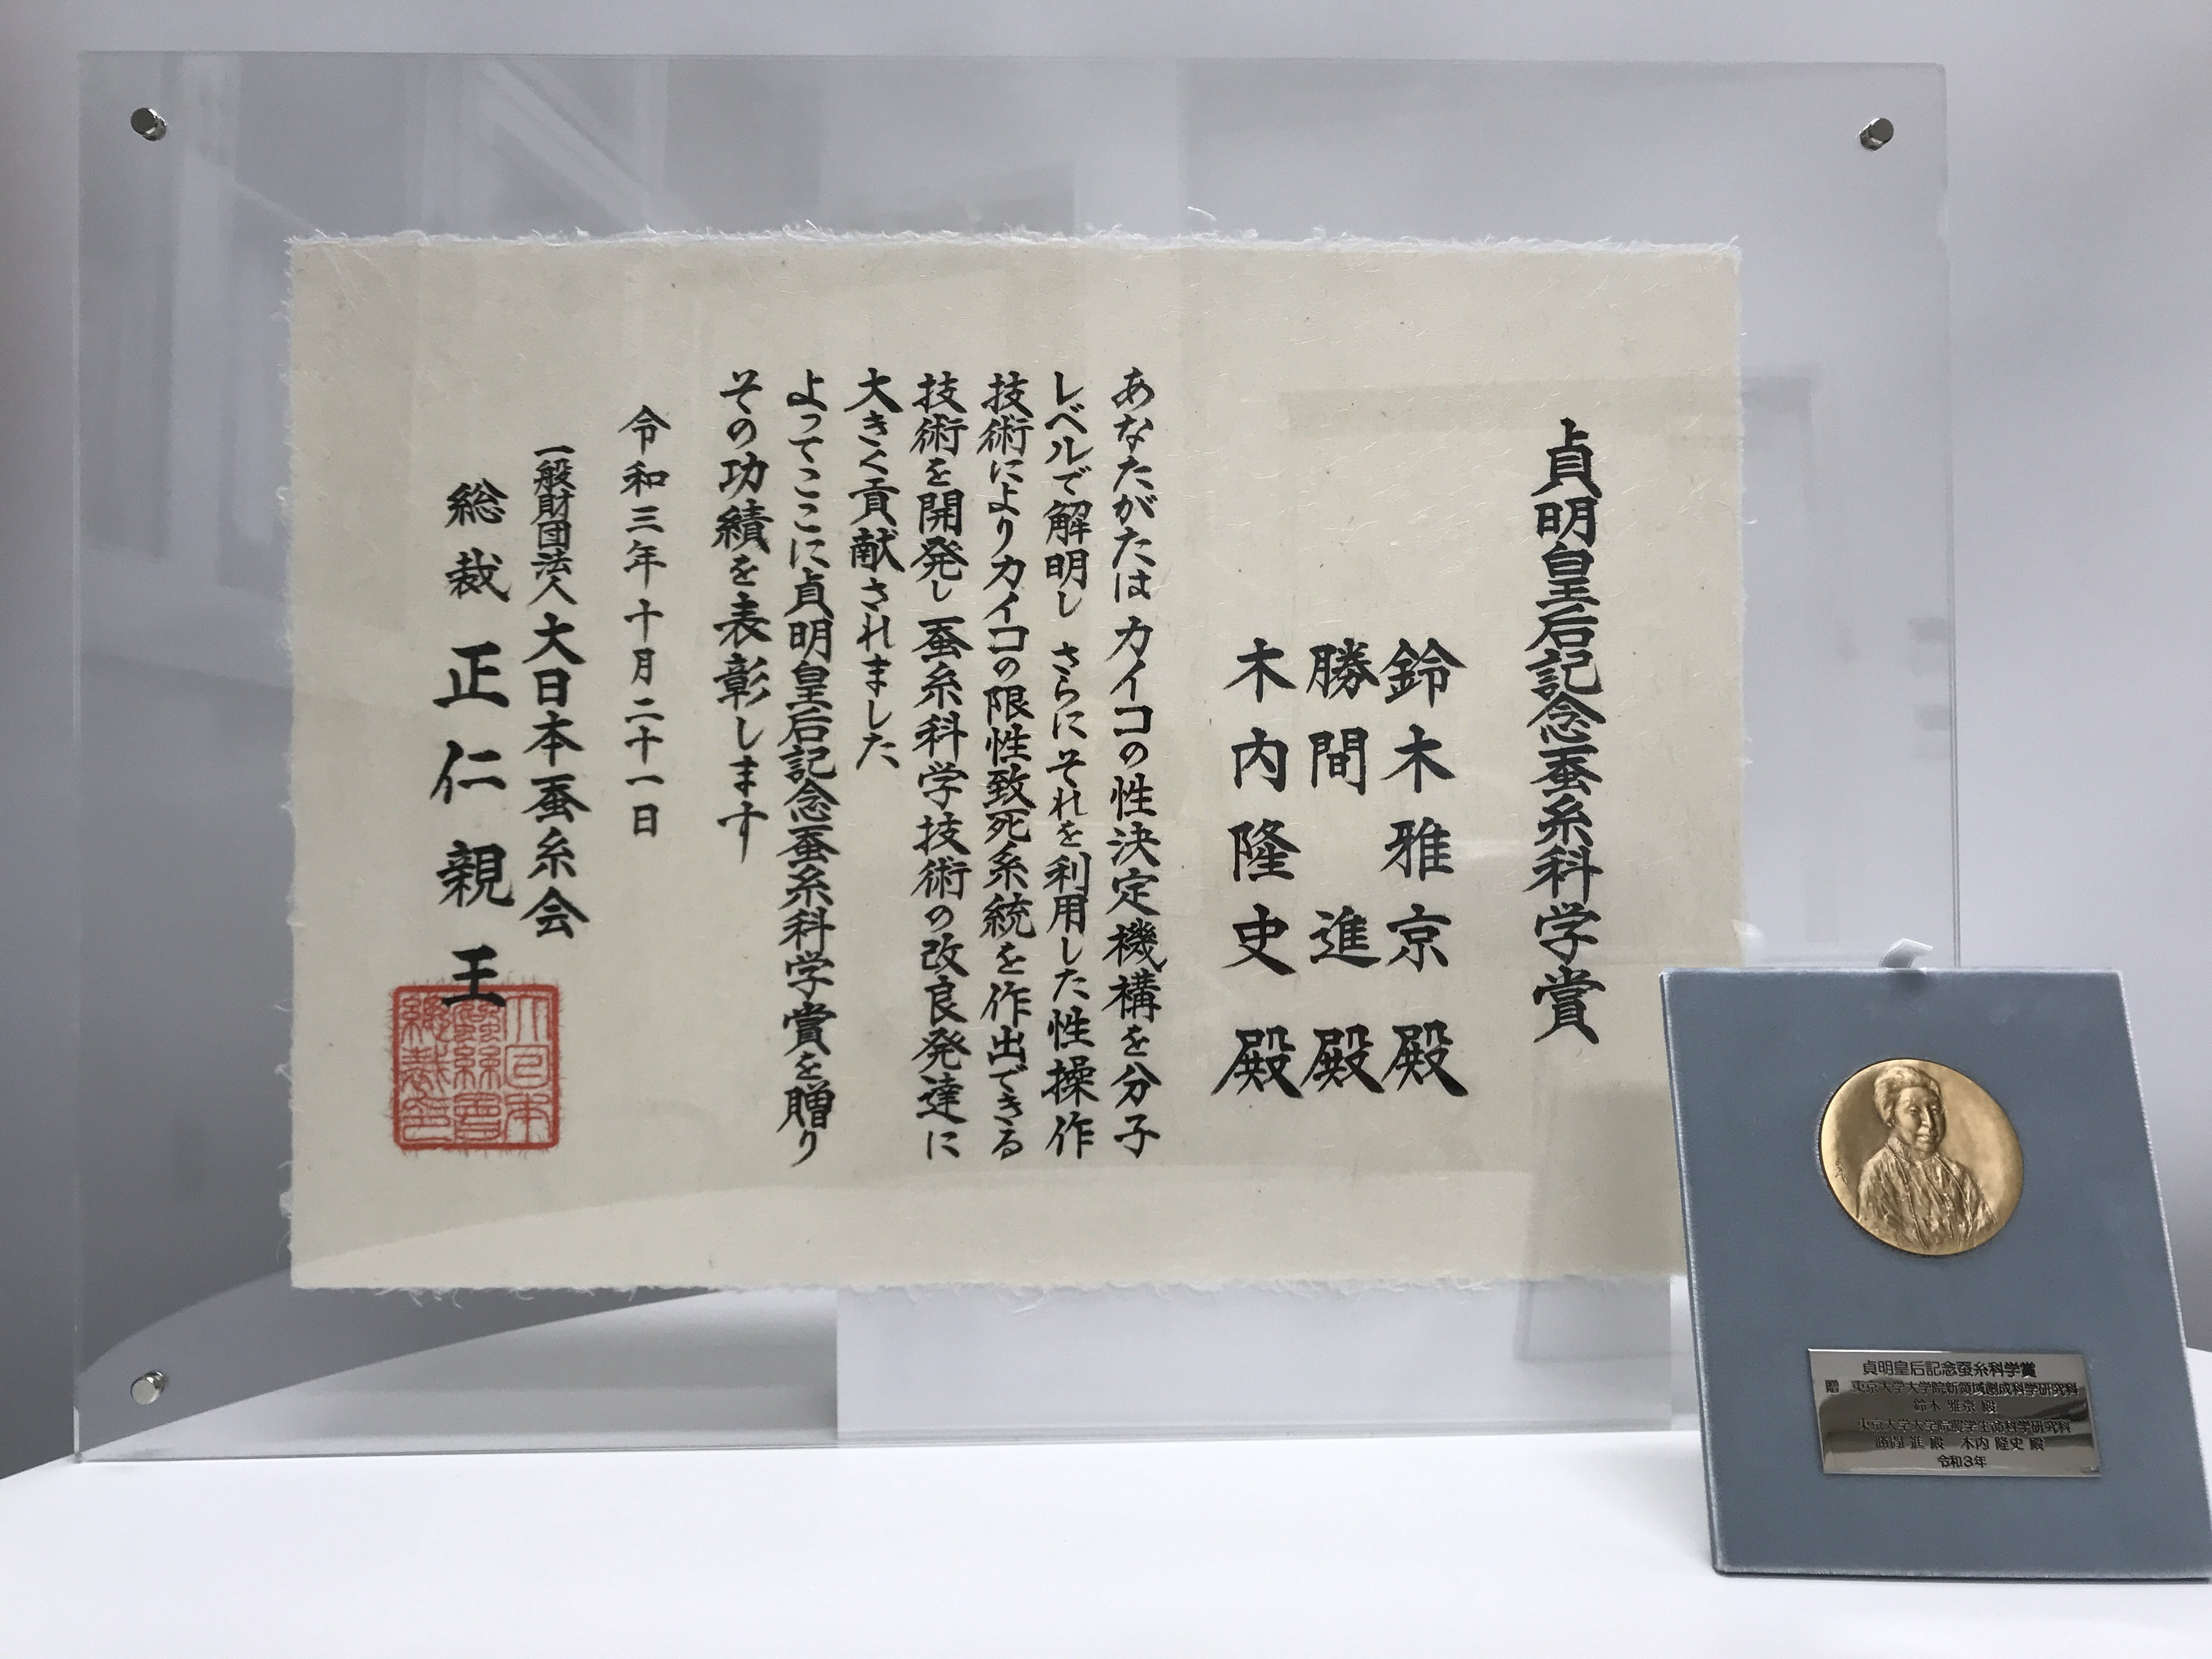 貞明皇后記念蚕糸科学賞
鈴木雅京殿
勝間進殿
木内隆史殿
あなたがたはカイコの性決定機構を分子
レベルで解明し さらにそれを利用した性操作
技術によりカイコの限性致死系統を作出できる
技術を開発し蚕糸科学技術の改良発達に
大きく貢献されました
よってここに貞明皇后記念蚕糸科学賞を贈り
その功績を表彰します
令和三年十月二十一日
一般財団法人大日本蚕糸会
総裁正仁親王
大日本
蠶絲會
總裁印
貞明皇后記念蚕糸科学賞
贈 東京大学大学院新領域創成科学研究科
鈴木 雅京 殿
東京大学大学院農学生命科学研究科
勝間 進 殿 木内 隆史 殿
令和3年